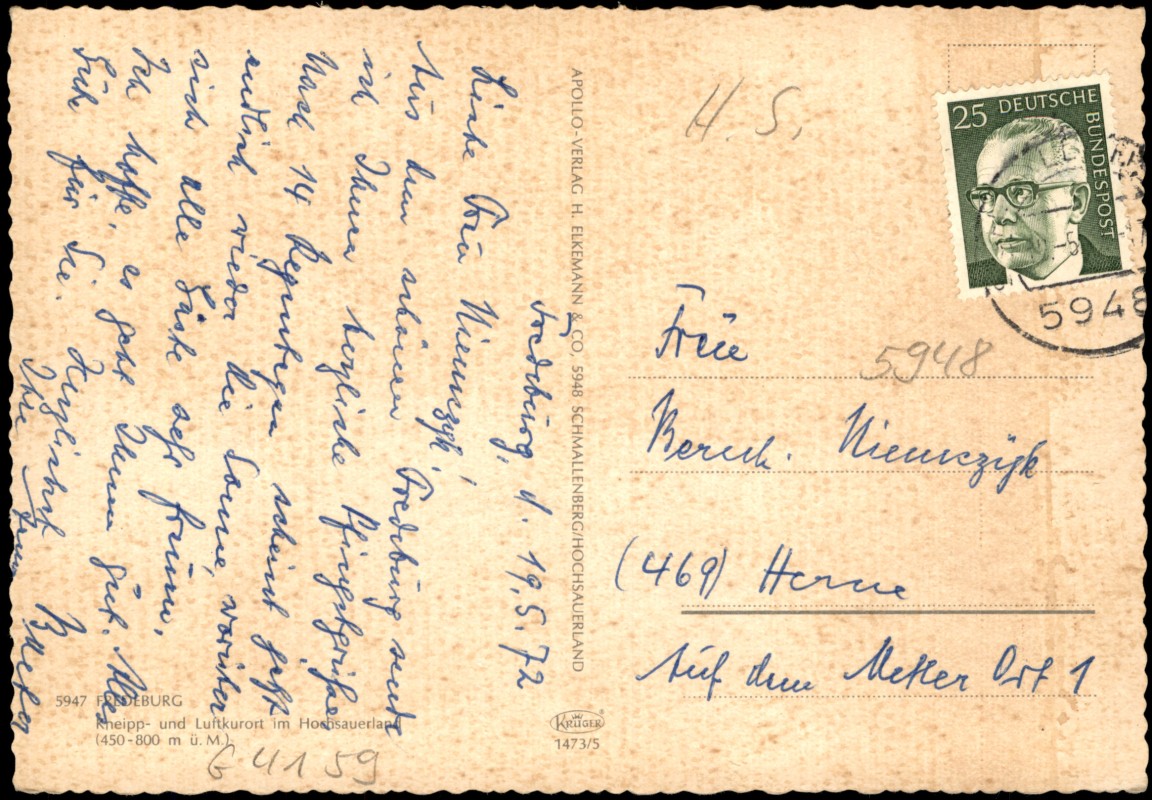 Fredeburg, d. 19.5.72
Liebe Frau Niemczyk!
Aus dem schönen Fredeburg sende
ich Ihnen herzliche Pfingstgrüße.
Nach 14 Regentagen scheint jetzt
endlich wieder die Sonne, worüber
sich alle Gäste sehr freuen.
Ich hoffe, es geht Ihnen gut. Alles
Gute für Sie. Herzlichst
Ihre
APOLLO-VERLAG H. ELKEMANN & CO, 5948 SCHMALLENBERG/HOCHSAUERLAND
5947 FREDEBURG
Kneipp- und Luftkurort im Hochsauerland
(450-800 m ü. M.)
G 4159
KRÜGER
1473/5
H. S.
25 DEUTSCHE BUNDESPOST
5948
5948
Frau
Niemczyk
(469) Herne
Auf dem Ort 1